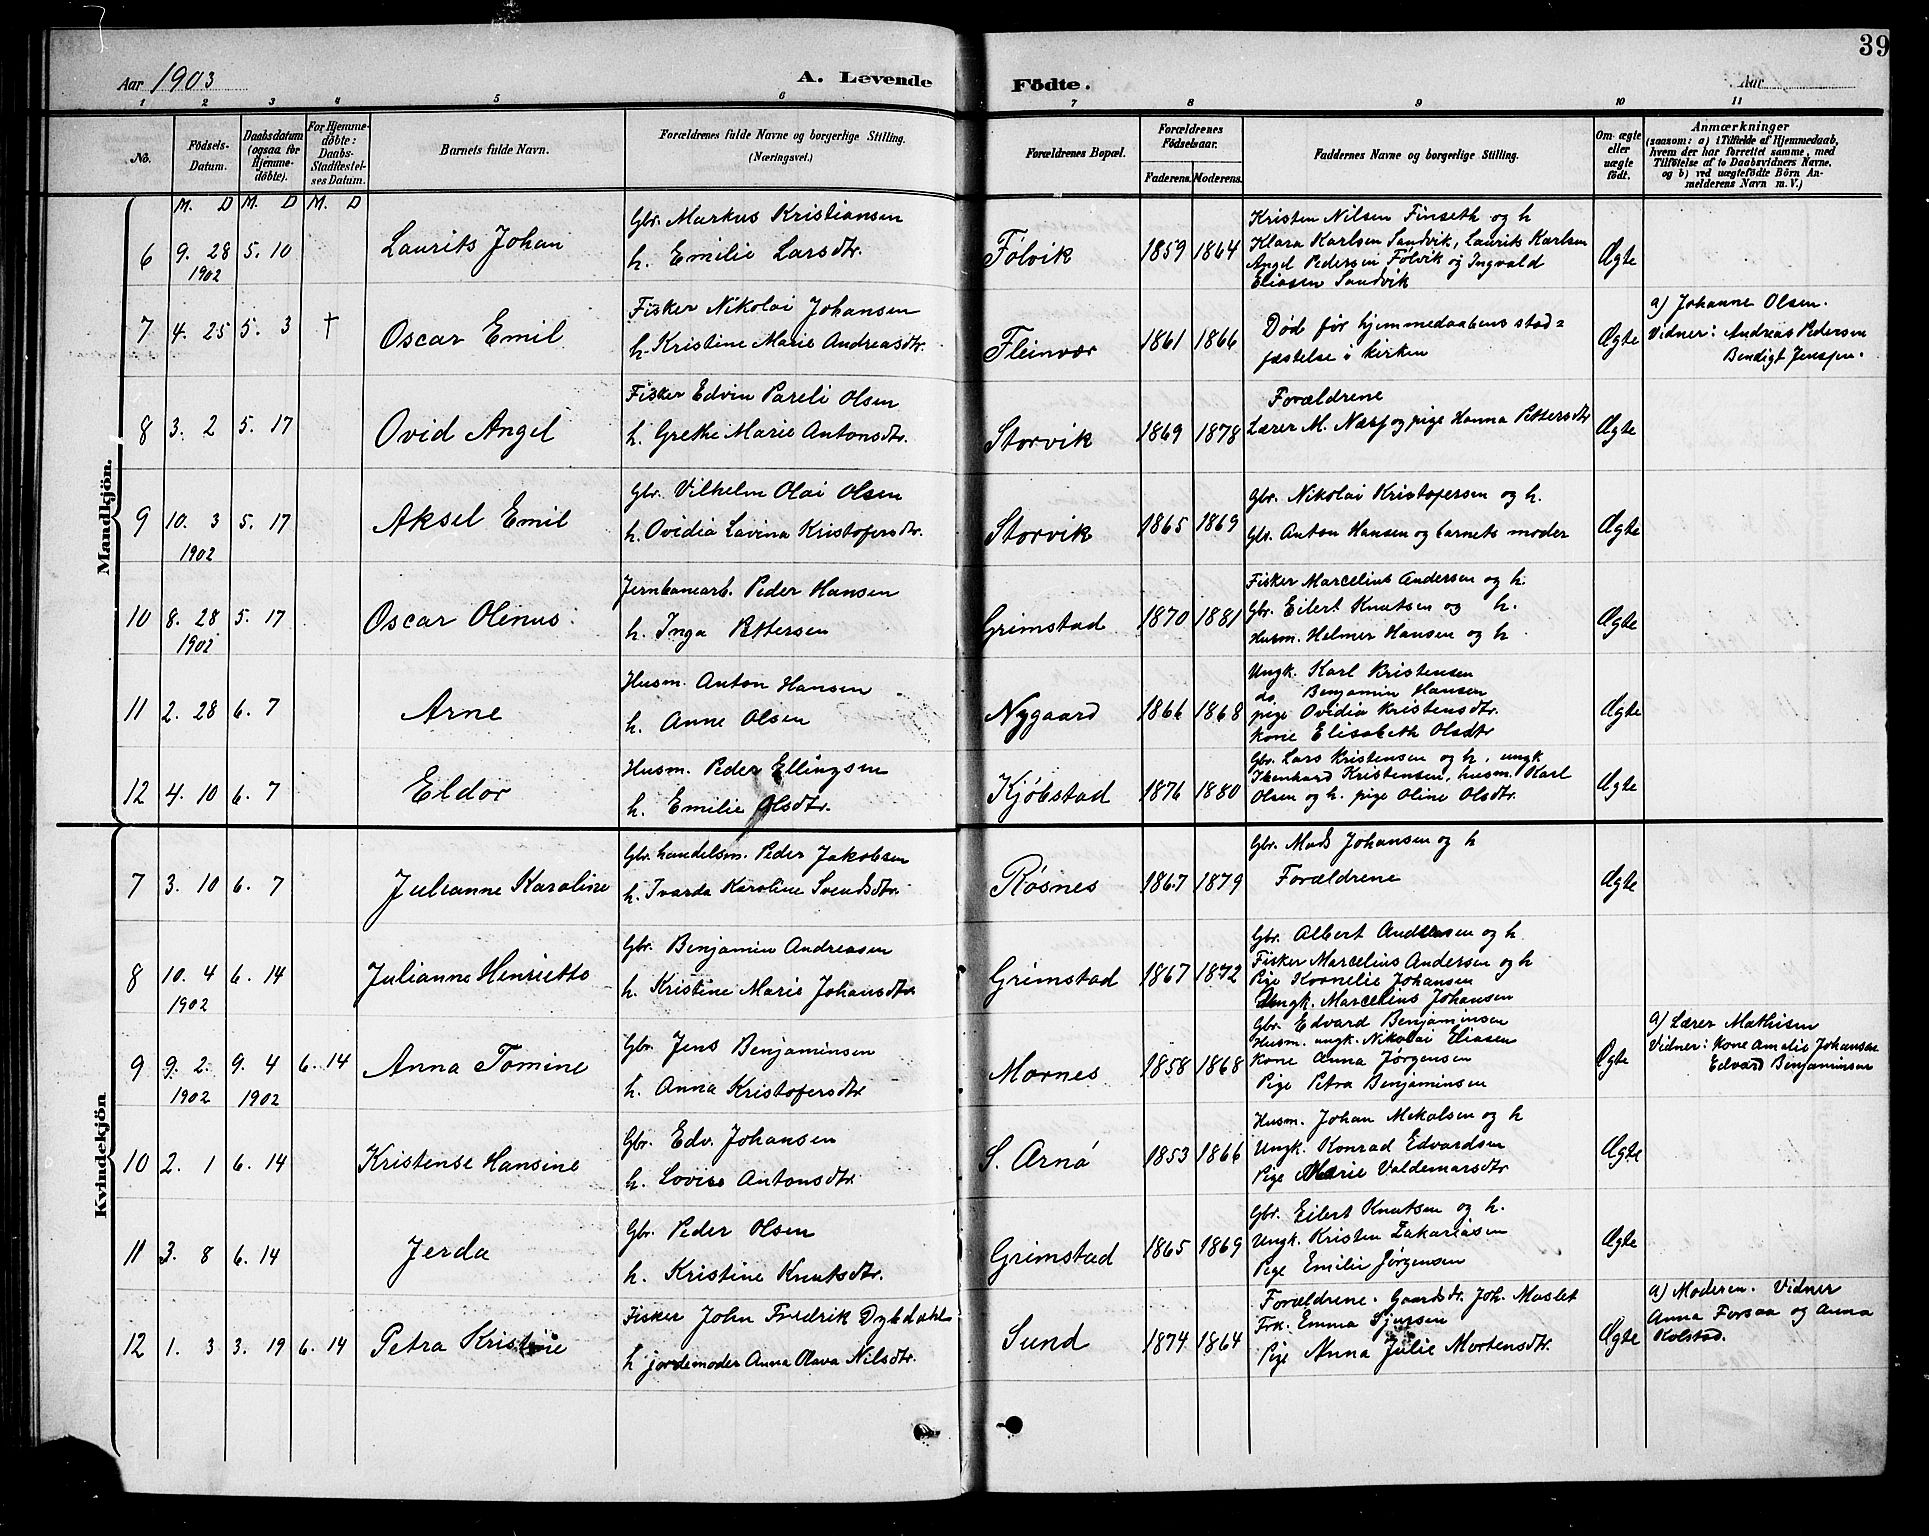 39
Aar 1903
A. Levende Födte.
Aar
1 2 3 4 5 6 7 8 9 10 11
No.
Födsels-Datum.
Daabsdatum (ogsaa for Hjemme-döbte).
For Hjemme-döbte: Daabs-Stadfæstel-ses Datum.
Barnets fulde Navn.
Forældrenes fulde Navne og borgerlige Stilling.
(Næringsvei.)
Forældrenes Bopæl.
Forældrenes Födselsaar.
Faderens. Moderens.
Faddernes Navne og borgerlige Stilling.
Om ægte eller uægte födt.
Anmærkninger
(saasom: a) i Tilfælde af Hjemmedaab,
hvem der har forrettet samme, med
Tilföielse af to Daabsvidners Navne,
og b) ved uægtefödte Börn An-
melderens Navn m. V.)
M. D M. D M. D
Mandkjön.
6 9. 28 1902 5. 10 Laurits Johan
Gbr. Markus Kristiansen
h. Emilie Larsdtr.
Følvik 1859 1864
Kristen Nilsen Finseth og h
Klara Karlsen Sandvik, Laurits Karlsen
Angel Pedersen Følvik og Ingvald
Eliasen Sandvik
Ægte
7 4. 25 5. 3 † Oscar Emil
Fisker Nikolai Johansen
h. Kristine Marie Andreasdtr.
Fleinvær 1861 1866
Død før hjemmedaabens stad=
fæstelse i kirken
Ægte
a) Johanne Olsen.
Vidner: Andreas Pedersen
Bendigt Jenssen.
8 3. 2 5. 17 Ovid Angel
Fisker Edvin Pareli Olsen
h. Grethe Marie Antonsdtr.
Storvik 1869 1878
Forældrene
Lærer M. Næss og pige Hanna Pettersdtr
Ægte
9 10. 3 1902 5. 17 Aksel Emil
Gbr. Vilhelm Olai Olsen
h. Ovidia Lavina Kristofersdtr.
Storvik 1865 1869
Gbr. Nikolai Kristofersen og h.
Gbr. Anton Hansen og barnets moder
Ægte
10 8. 28 1902 5. 17 Oscar Olenus
Jernbanearb. Peder Hansen
h. Inga Pettersen
Grimstad 1870 1881
Fisker Marcelius Andersen og h.
Gbr. Eilert Knutsen og h.
Husm. Helmer Hansen og h
Ægte
11 2. 28 6. 7 Arne
Husm. Anton Hansen
h. Anne Olsen
Nygaard 1866 1868
Ungk. Karl Kristensen
do. Benjamin Hansen
pige Ovidia Kristensdtr.
kone Elisabeth Olsdtr
Ægte
12 4. 10 6. 7 Eldor
Husm. Peder Ellingsen
h. Emilie Olsdtr.
Kjøbstad 1876 1880
Gbr. Lars Kristensen og h, ungk
Ibenhard Kristensen, husm. Karl
Olsen og h. pige Oline Olsdtr.
Ægte
Kvindekjön
7 3. 10 6. 7 Julianne Karoline
Gbr. handelsm. Peder Jakobsen
h. Ivarda Karoline Svendsdtr.
Røsnes 1867 1879
Gbr. Mads Johansen og h
Forældrene
Ægte
8 10. 4 1902 6. 14 Julianne Henriette
Gbr. Benjamin Andreasen
h. Kristine Marie Johansdtr
Grimstad 1867 1872
Gbr. Albert Andersen og h.
Fisker Marcelius Andersen og h
Pige Kornelie Johansen
Ungk. Marcelius Johansen
Ægte
9 9. 2. 1902 9. 4 1902 6. 14 Anna Tomine
Gbr. Jens Benjaminsen
h. Anna Kristofersdtr
Mornes 1858 1868
Gbr. Edvard Benjaminsen
Husm. ungk. Nikolai Eliasen
kone Anna Jørgensen
Pige Petra Benjaminsen
Ægte
a) Lærer Mathisen
Vidner: kone Amalie Johansen
Edvard Benjaminsen
10 2. 1 6. 14 Kristense Hansine
Gbr. Edv. Johansen
h. Lovise Antonsdtr.
S. Arnø 1853 1866
Husm. Johan Mikalsen og h
Ungk. Konrad Edvardsen
Pige Marie Valdemarsdtr
Ægte
11 3. 8 6. 14 Jerda
Gbr. Peder Olsen
h. Kristine Knutsdtr.
Grimstad 1865 1869
Gbr. Eilert Knutsen og h.
Ungk. Kristen Zakariasen
Pige Emilie Jørgensen
Ægte
12 1. 3 3. 19 6. 14 Petra Kristine
Fisker John Fredrik Dybdahl
h jordemoder Anna Olava Nilsdtr.
Sund 1874 1864
Forældrene. Gaardbr. Joh. Maslet
Frk. Emma Sjursen
Pige Anna Julie Mortensdtr.
Ægte
a) Moderen. Vidner
Anna Forsaa og Anna
Kolstad.